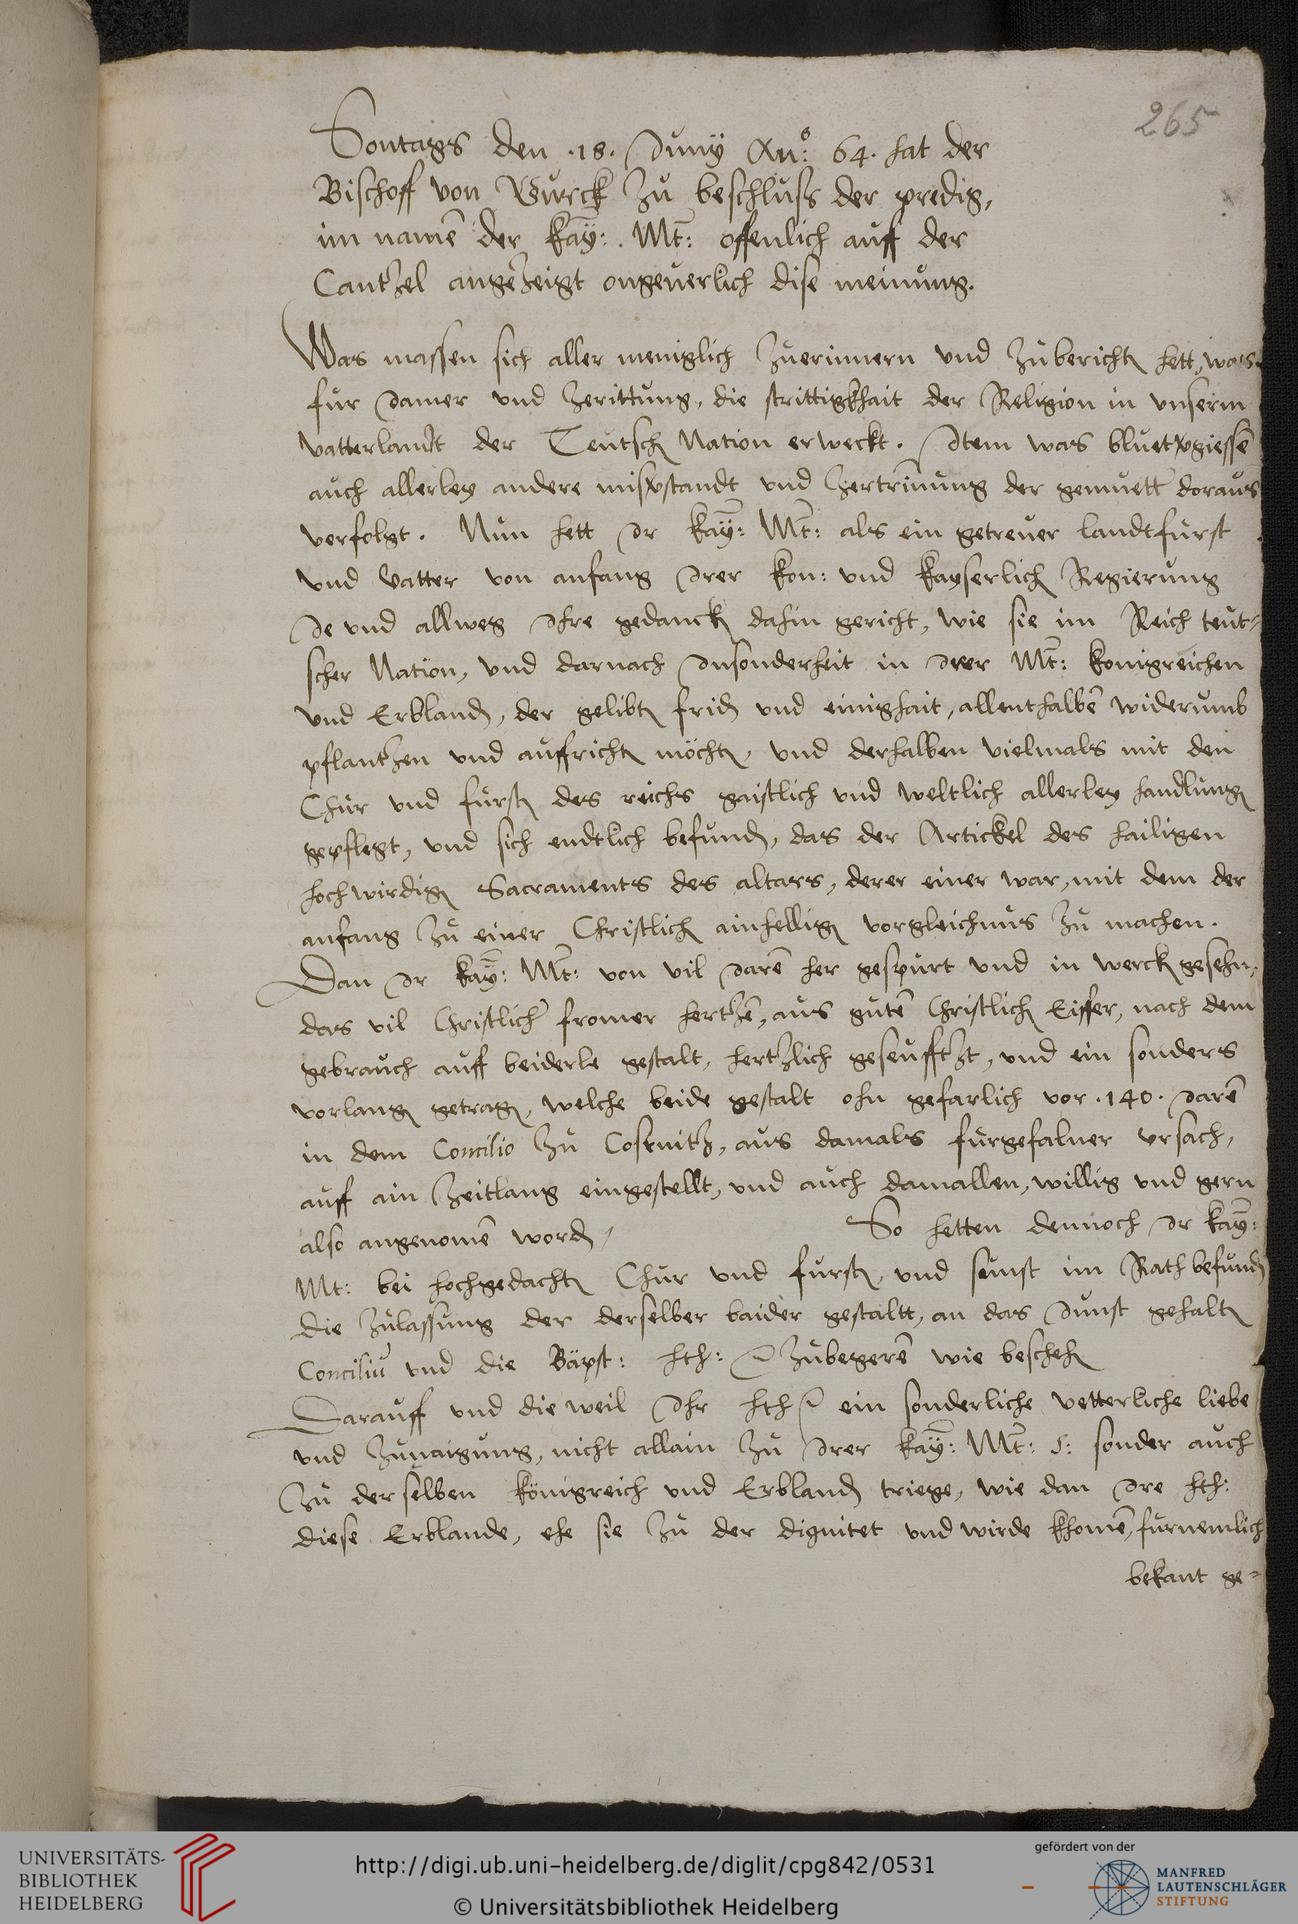 265
Sontags den .18. Juny Anº: 64. hat der
Bischoff von Gurck zu beschluss der predig,
im namē der Kay: Mt: offenlich auff der
Cantzel angezeigt ongeuerlich dise meinung.
Was massen sich aller meniglich zuerinnern vnd zuberichtn hett, was
fur Jamer vnd Zerittung, die strittigkhait der Religion in vnserm
vatterlandt der Teutsch Nation erweckt. Item was bluetvgiessē
auch allerley andere misvstandt vnd Zertrinnung der gemuett doraus
verfolgt. Nun hett Ir Kay: Mt: als ein getreuer landtfurst
vnd Vatter von anfang Irer Kon: vnd Kayserlich Regierung
Je vnd allweg Ihre gedanckn dahin gericht, wie sie im Reich teut-
scher Nation, vnd darnach Insonderheit in Irer Mt: Konigreichen
vnd Erblandn, der gelibtn fridn vnd einighait, allenthalbē widerumb
pflantzen vnd auffrichtn möchtn, vnd derhalben vielmals mit den
Chur vnd furstn des reichs gaistlich vnd weltlich allerley handlungn
gepflegt, vnd sich endtlich befundn, das der Artickel des hailigen
hochwirdign Sacraments des altars, derer einer war, mit dem der
anfang zu einer Christlich ainhellign vorgleichnus zu machen.
Dan Ir Kay: Mt: von vil Jarē her gespurt vnd in werck gesehn,
das vil Christlich fromer hertzē, aus gutē Christlich Eiffer, nach dem
gebrauch auff beiderle gestalt, hertzlich geseufftzt, vnd ein sonders
vorlangn getragn, welche beide gestalt ohn gefarlich vor .140. Jarē
in dem Concilio zu Costnitz, aus damals furgefalner vrsach,
auff ain Zeitlang eingestellt, vnd auch damallen, willig vnd gern
also angenomē wordn,
So hetten dennoch Ir Kay:
Mt: bei hochgedachtn Chur vnd furstn, vnd sunst im Rath befundn
die Zulassung der derselber baider gestaltt, an das Junst gehaltn
Conciliu vnd die Bäpst: Hth: zubegerē wie beschehn
Darauff vnd die weil Ihr Hth ein sonderliche vetterliche liebe
vnd Zunaigung, nicht allain zu Irer Kay: Mt: sonder auch
Zu derselben Königreich vnd Erblandn triege, wie dan Ire Hth:
diese Erblande, ehe sie zu der dignitet vnd wirde khomē, furnemlich
bekant ge-
UNIVERSITÄTS-
BIBLIOTHEK
HEIDELBERG
http://digi.ub.uni-heidelberg.de/diglit/cpg842/0531
© Universitätsbibliothek Heidelberg
gefördert von der
MANFRED
LAUTENSCHLÄGER
STIFTUNG